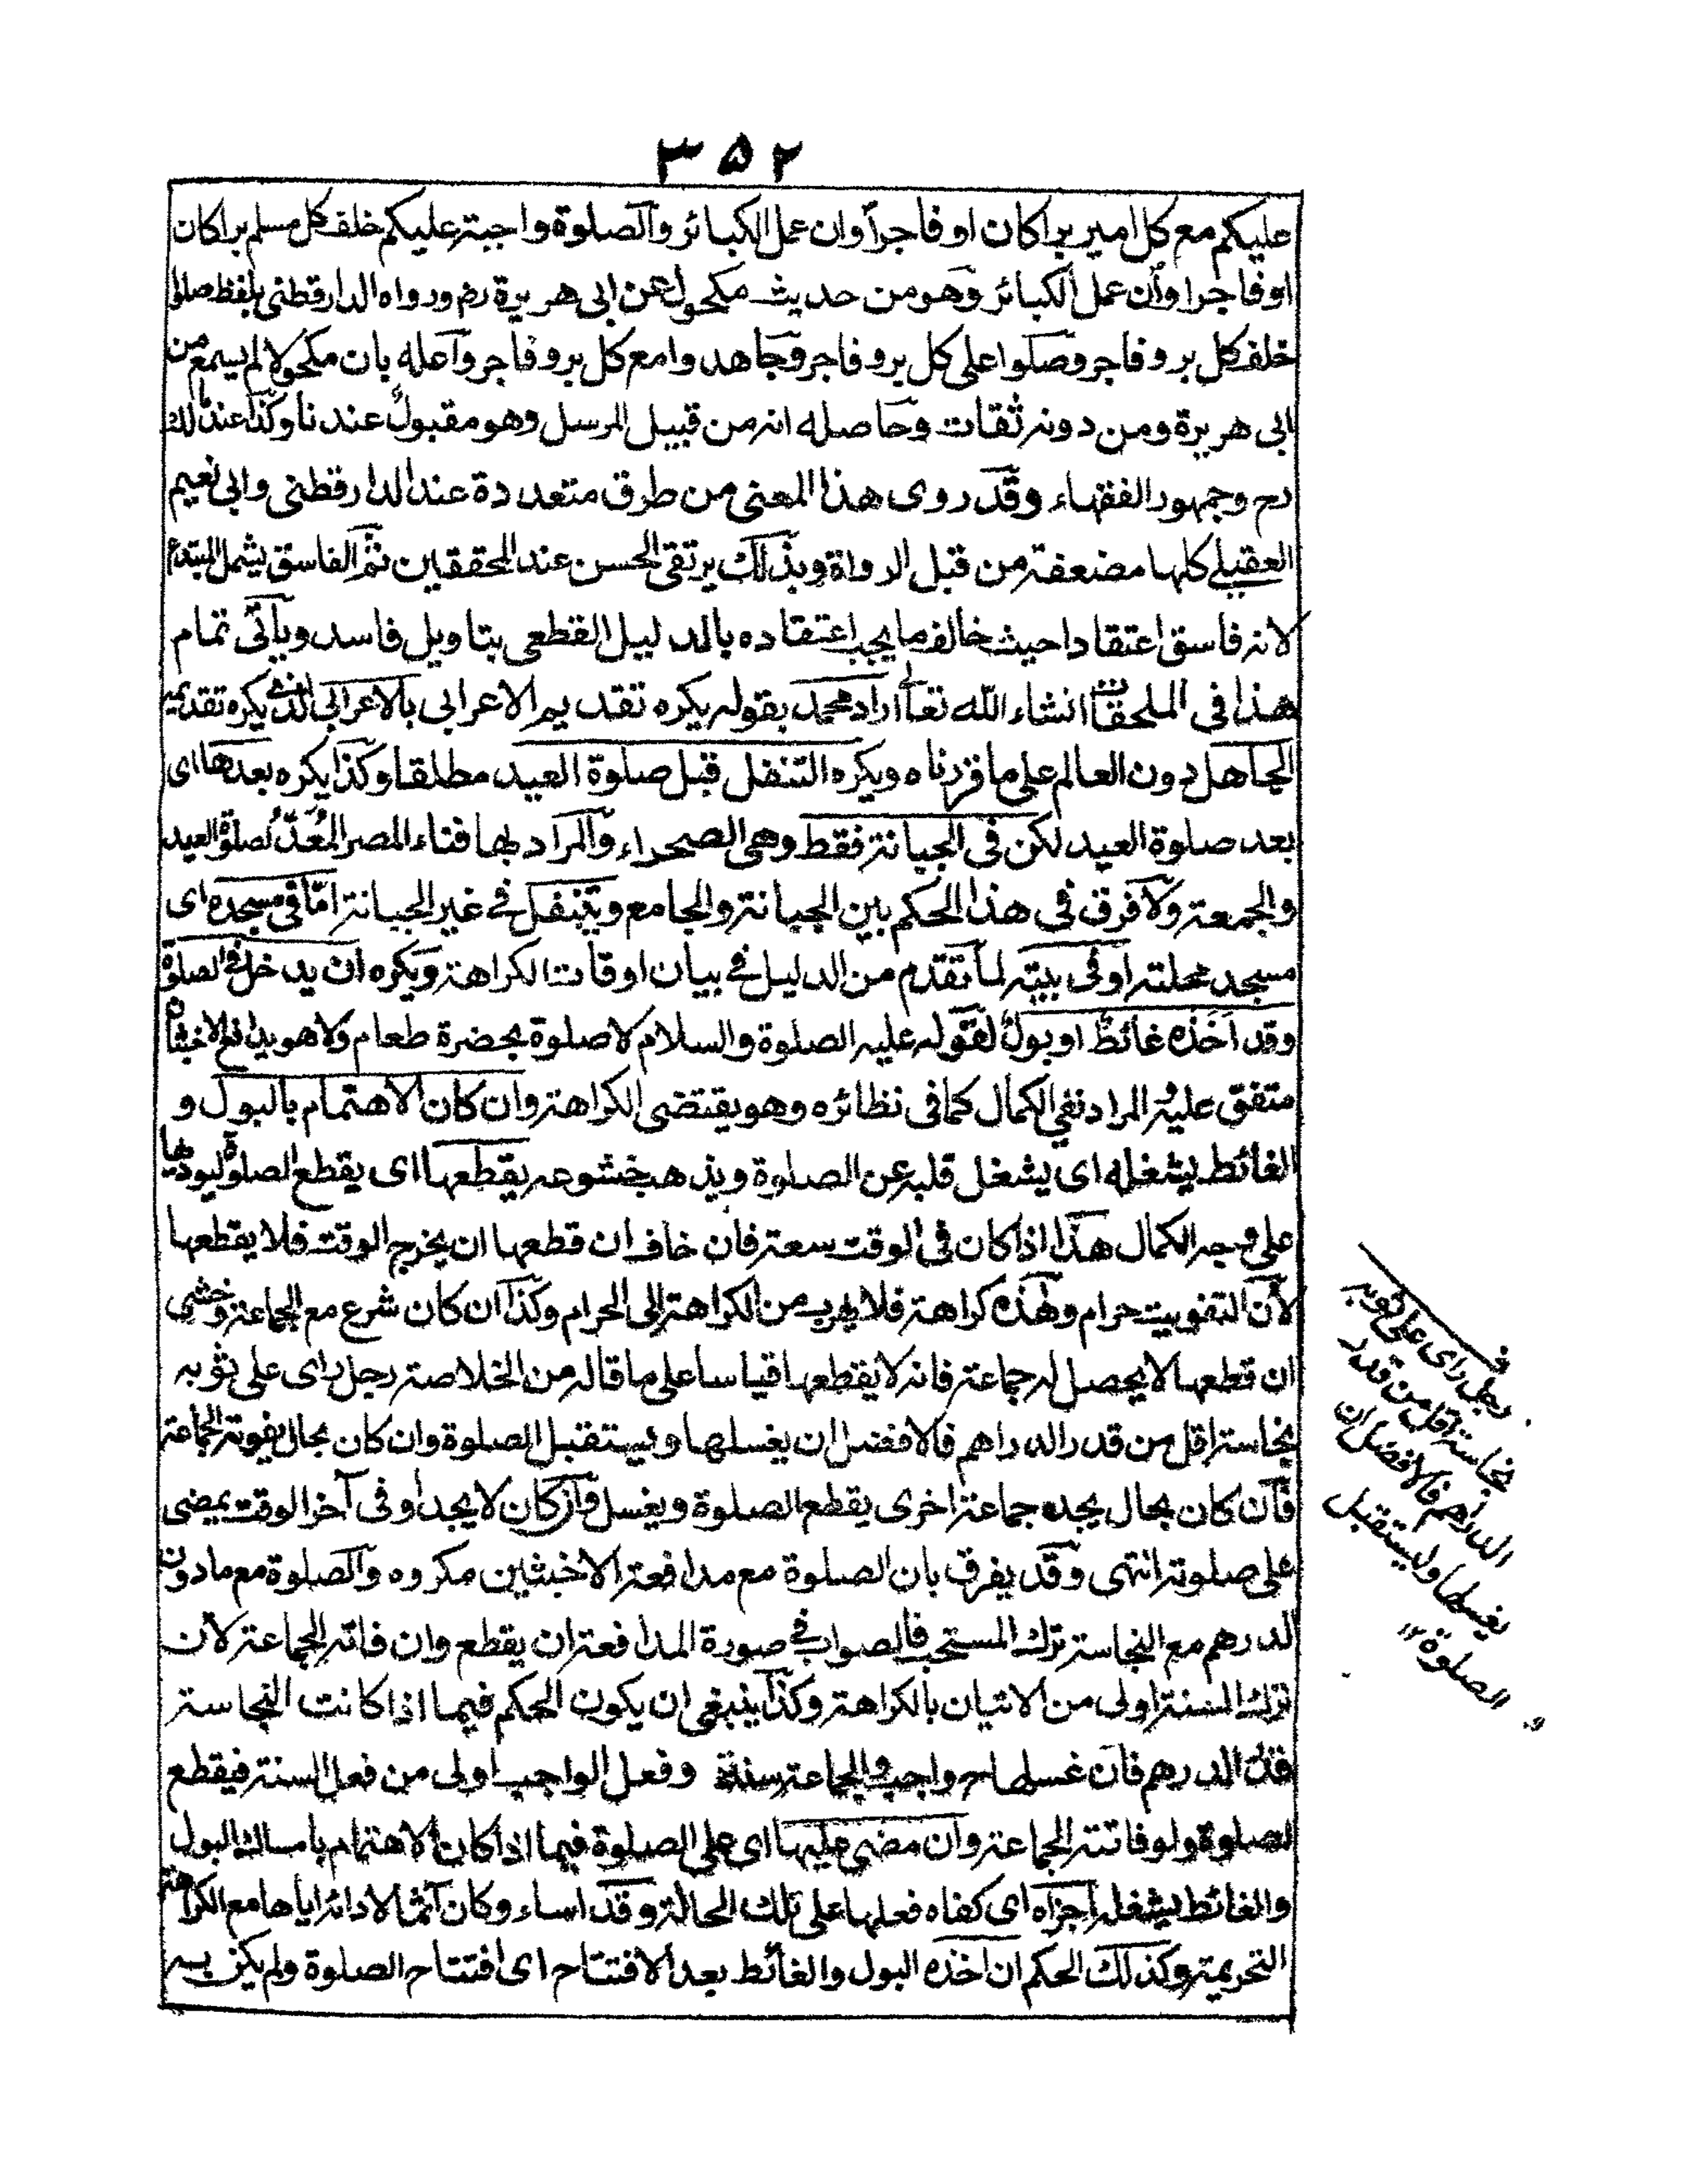 ۳۵۲
عليكم مع كل امير برا كان او فاجرا وان عمل الكبائر والصلوة واجبة عليكم خلف كل مسلم برا كان
او فاجرا وان عمل الكبائر وهو من حديث مكحول عن ابى هريرة رض ورواه الدارقطنى بلفظ صلوا
خلف كل بر وفاجر وصلوا على كل بر وفاجر وجاهدوا مع كل بر وفاجر واعله بان مكحولا لم يسمع من
ابى هريرة ومن دونه ثقات وحاصله انه من قبيل المرسل وهو مقبول عندنا وكذا عند مالك
رح وجمهور الفقهاء وقد روى هذا المعنى من طرق متعددة عند الدارقطنى وابى نعيم
العقيلے كلها مضعفة من قبل الرواة وبذلك يرتقى الحسن عند المحققين ثم الفاسق يشمل المبتدع
لانه فاسق اعتقادا حيث خالف ما يجب اعتقاده بالدليل القطعى بتاويل فاسد وياتى تمام
هذا فى الملحقات انشاء الله تعالى اراد محمد بقوله يكره تقديم الاعرابى بالاعرابى الذى يكره تقديمه
الجاهل دون العالم على ما قررناه ويكره التنفل قبل صلوة العيد مطلقا وكذا يكره بعدها اى
بعد صلوة العيد لكن فى الجبانة فقط وهى الصحراء والمراد بها فناء المصر المُعَدُّ لصلوة العيد
والجمعة ولا فرق فى هذا الحكم بين الجبانة والجامع ويتنفل فے غير الجبانة امّا فى مسجده اى
مسجد محلته او فى بيته لما تقدم من الدليل فے بيان اوقات الكراهة ويكره ان يدخل فى الصلوة
وقد اَخَذه غائطٌ او بولٌ لقوله عليه الصلوة والسلام لا صلوة بحضرة طعام ولا هو يدافع الاخبثان
متفق عليه والمراد نفي الكمال كما فى نظائره وهو يقتضى الكراهة وان كان الاهتمام بالبول و
الغائط يشغله اى يشغل قلبه عن الصلوة ويذهب خشوعه يقطعها اى يقطع الصلوة ليوديها
على وجه الكمال هذا اذا كان فى الوقت سعة فان خاف ان قطعها ان يخرج الوقت فلا يقطعها
لأن التفويت حرام وهذه كراهة فلا يهرب من الكراهة الى الحرام وكذا ان كان شرع مع الجماعة وخشى
ان قطعها لا يحصل له جماعة فانه لا يقطعها قياسا على ما قاله من الخلاصة رجل راى على ثوبه
نجاسة اقل من قدر الدراهم فالافضل ان يغسلها ويستقبل الصلوة وان كان بحال يفوته الجماعة
فان كان بحال يجده جماعة اخرى يقطع الصلوة ويغسل وان كان لا يجد او فى آخر الوقت يمضى
على صلوته انتهى وقد يفرق بان الصلوة مع مدافعة الاخبثين مكروه والصلوة مع مادون
الدرهم مع النجاسة ترك المستحب فالصواب فے صورة المدافعة ان يقطع وان فاته الجماعة لأن
ترك السنة اولى من الاتيان بالكراهة وكذا ينبغى ان يكون الحكم فيما اذا كانت النجاسة
قدر الدرهم فان غسلها ح واجب والجماعة سنة وفعل الواجب اولى من فعل السنة فيقطع
الصلوة ولو فاتته الجماعة وان مضى عليها اى على الصلوة فيما اذا كان الاهتمام بامساك البول
والغائط يشغله اجزاه اى كفاه فعلها على تلك الحالة وقد اساء وكان آثما لادائه اياها مع الكراهة
التحريمة وكذلك الحكم ان اخذه البول والغائط بعد الافتتاح اى افتتاح الصلوة ولم يكن به
ف
رجل راى على ثوبه
نجاسة اقل من قدر
الدراهم فالافضل ان
يغسلها وليستقبل
الصلوة ۱۲